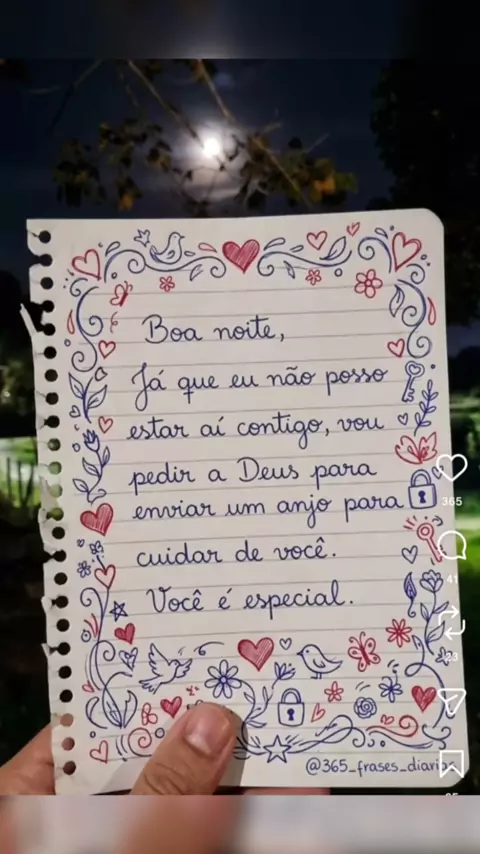 Boa noite,
Já que eu não posso
estar aí contigo, vou
pedir a Deus para
enviar um anjo para
cuidar de você.
Você é especial.
365
41
23
@365_frases_diarias